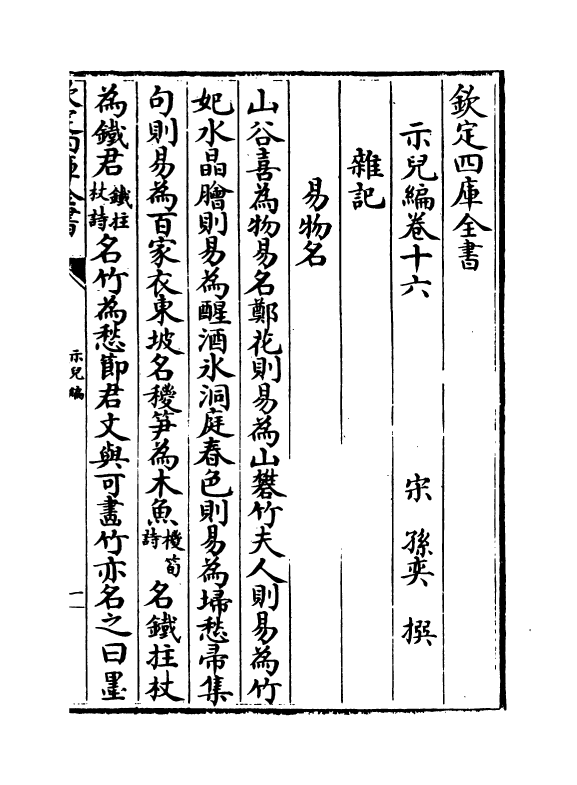 欽定四庫全書
示兒編卷十六
宋 孫奕 撰
雜記
易物名
山谷喜為物易名鄭花則易為山礬竹夫人則易為竹
妃水晶膾則易為醒酒氷洞庭春色則易為埽愁帚集
句則易為百家衣東坡名椶笋為木魚椶筍詩名鐵拄杖
為鐵君鐵柱杖詩名竹為愁節君文與可畫竹亦名之曰墨
欽定四庫全書
示兒編
一